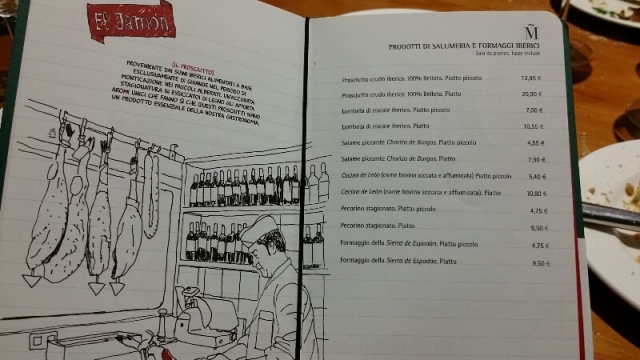 El Jamón
(IL PROSCIUTTO)
PROVENIENTE DAI SUINI IBERICI ALIMENTATI A BASE
ESCLUSIVAMENTE DI GHIANDE NEL PERIODO DI
MONTICAZIONE NEI PASCOLI ALBERATI. UN'ACCURATA
STAGIONATURA SU ESSICCATOI DI LEGNO GLI APPORTA
AROMI UNICI CHE FANNO SÌ CHE QUESTI PROSCIUTTI SIANO
UN PRODOTTO ESSENZIALE DELLA NOSTRA GASTRONOMIA.
M̃
PRODOTTI DI SALUMERIA E FORMAGGI IBERICI
Sala da pranzo. Tasse incluse
Prosciutto crudo iberico 100% Bellota. Piatto piccolo 12,95 €
Prosciutto crudo iberico 100% Bellota. Piatto 20,90 €
Lombata di maiale iberico. Piatto piccolo 7,00 €
Lombata di maiale iberico. Piatto 10,55 €
Salame piccante: Chorizo de Burgos. Piatto piccolo 4,55 €
Salame piccante: Chorizo de Burgos. Piatto 7,90 €
Cecina de León (carne bovina seccata e affumicata). Piatto piccolo 5,40 €
Cecina de León (carne bovina seccata e affumicata). Piatto 10,80 €
Pecorino stagionato. Piatto piccolo 4,75 €
Pecorino stagionato. Piatto 9,50 €
Formaggio della Sierra de Espadán. Piatto piccolo 4,75 €
Formaggio della Sierra de Espadán. Piatto 9,50 €